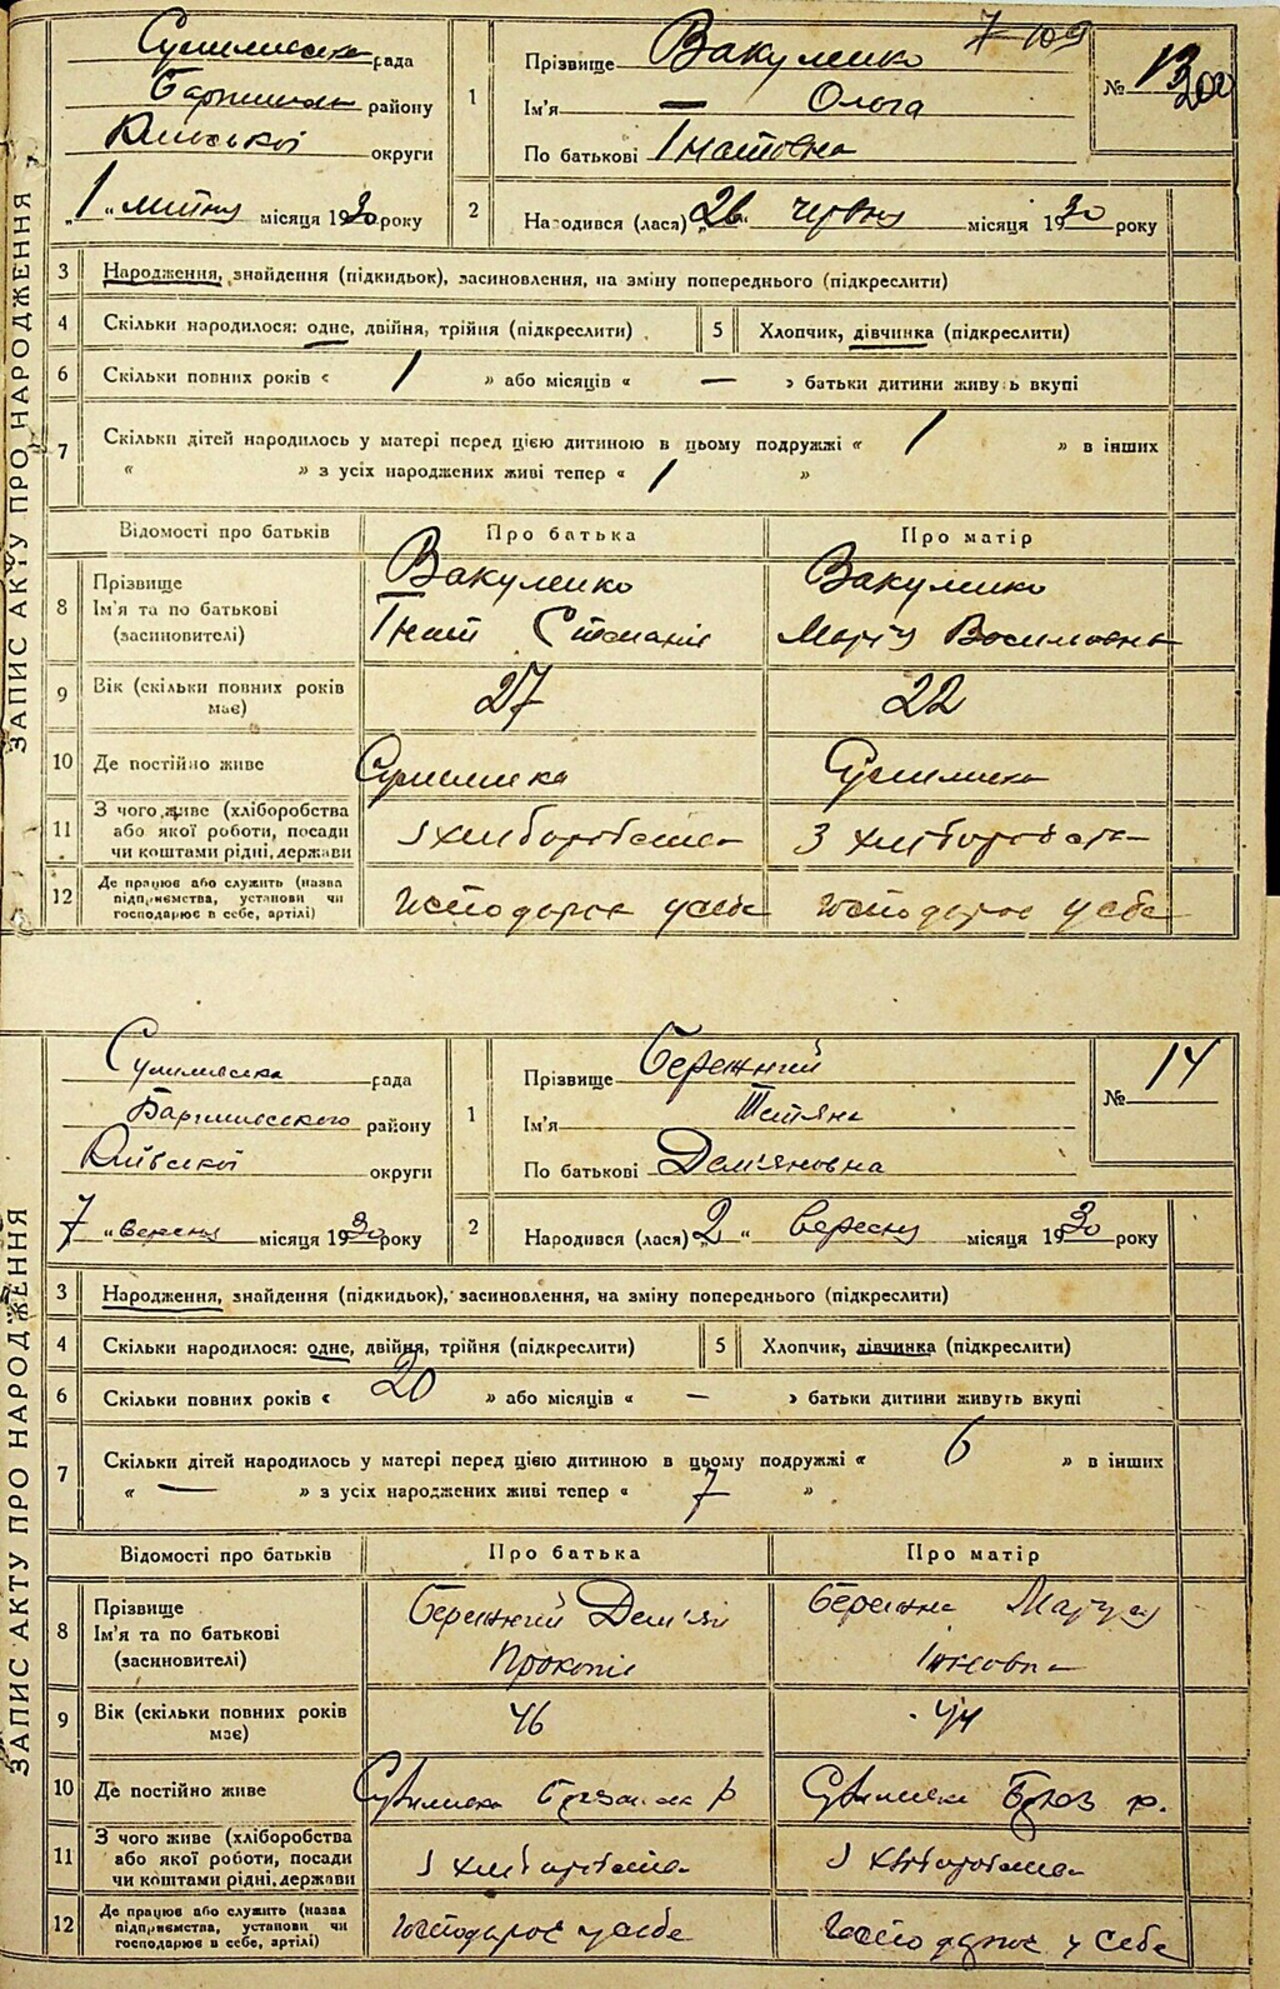 ЗАПИС АКТУ ПРО НАРОДЖЕННЯ
рада
району
Київської округи
„1“ липня місяця 1930 року
7 109
1 Прізвище Вакуленко
Ім'я — Ольга
По батькові Гнатовна
№ 13
200
2 Народився (лася) „26“ червня місяця 1930 року
3 Народження, знайдення (підкидьок), засиновлення, на зміну попереднього (підкреслити)
4 Скільки народилося: одне, двійня, трійня (підкреслити)
5 Хлопчик, дівчинка (підкреслити)
6 Скільки повних років « 1 » або місяців « — » батьки дитини живуть вкупі
7 Скільки дітей народилось у матері перед цією дитиною в цьому подружжі « 1 » в інших
« » з усіх народжених живі тепер « 1 »
Відомості про батьків Про батька Про матір
8 Прізвище Ім'я та по батькові (засиновителі)
Вакуленко Гнат
Вакуленко Марія Василовна
9 Вік (скільки повних років має) 27 22
10 Де постійно живе
11 З чого живе (хліборобства або якої роботи, посади чи коштами рідні, держави
з хлиборобства З хлиборобства
12 Де працює або служить (назва підприємства, установи чи господарює в себе, артілі)
господарює у себе господарює у себе
ЗАПИС АКТУ ПРО НАРОДЖЕННЯ
рада
району
Київської округи
7 „ вересня місяця 1930 року
1 Прізвище Бережний
Ім'я Тетяна
По батькові Дем'яновна
№ 14
2 Народився (лася) „2“ вересня місяця 1930 року
3 Народження, знайдення (підкидьок), засиновлення, на зміну попереднього (підкреслити)
4 Скільки народилося: одне, двійня, трійня (підкреслити)
5 Хлопчик, дівчинка (підкреслити)
6 Скільки повних років « 20 » або місяців « — » батьки дитини живуть вкупі
7 Скільки дітей народилось у матері перед цією дитиною в цьому подружжі « 6 » в інших
« — » з усіх народжених живі тепер « 7 »
Відомості про батьків Про батька Про матір
8 Прізвище Ім'я та по батькові (засиновителі)
Бережний Дем'ян
Бережна
9 Вік (скільки повних років має) 46 44
10 Де постійно живе
11 З чого живе (хліборобства або якої роботи, посади чи коштами рідні, держави
з хлиборобства з хліборобства
12 Де працює або служить (назва підприємства, установи чи господарює в себе, артілі)
господарює у себе господарює у себе